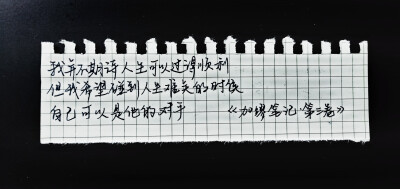 我并不期待人生可以过得顺利
但我希望碰到人生难关的时候
自己可以是他的对手 《加缪笔记·第三卷》